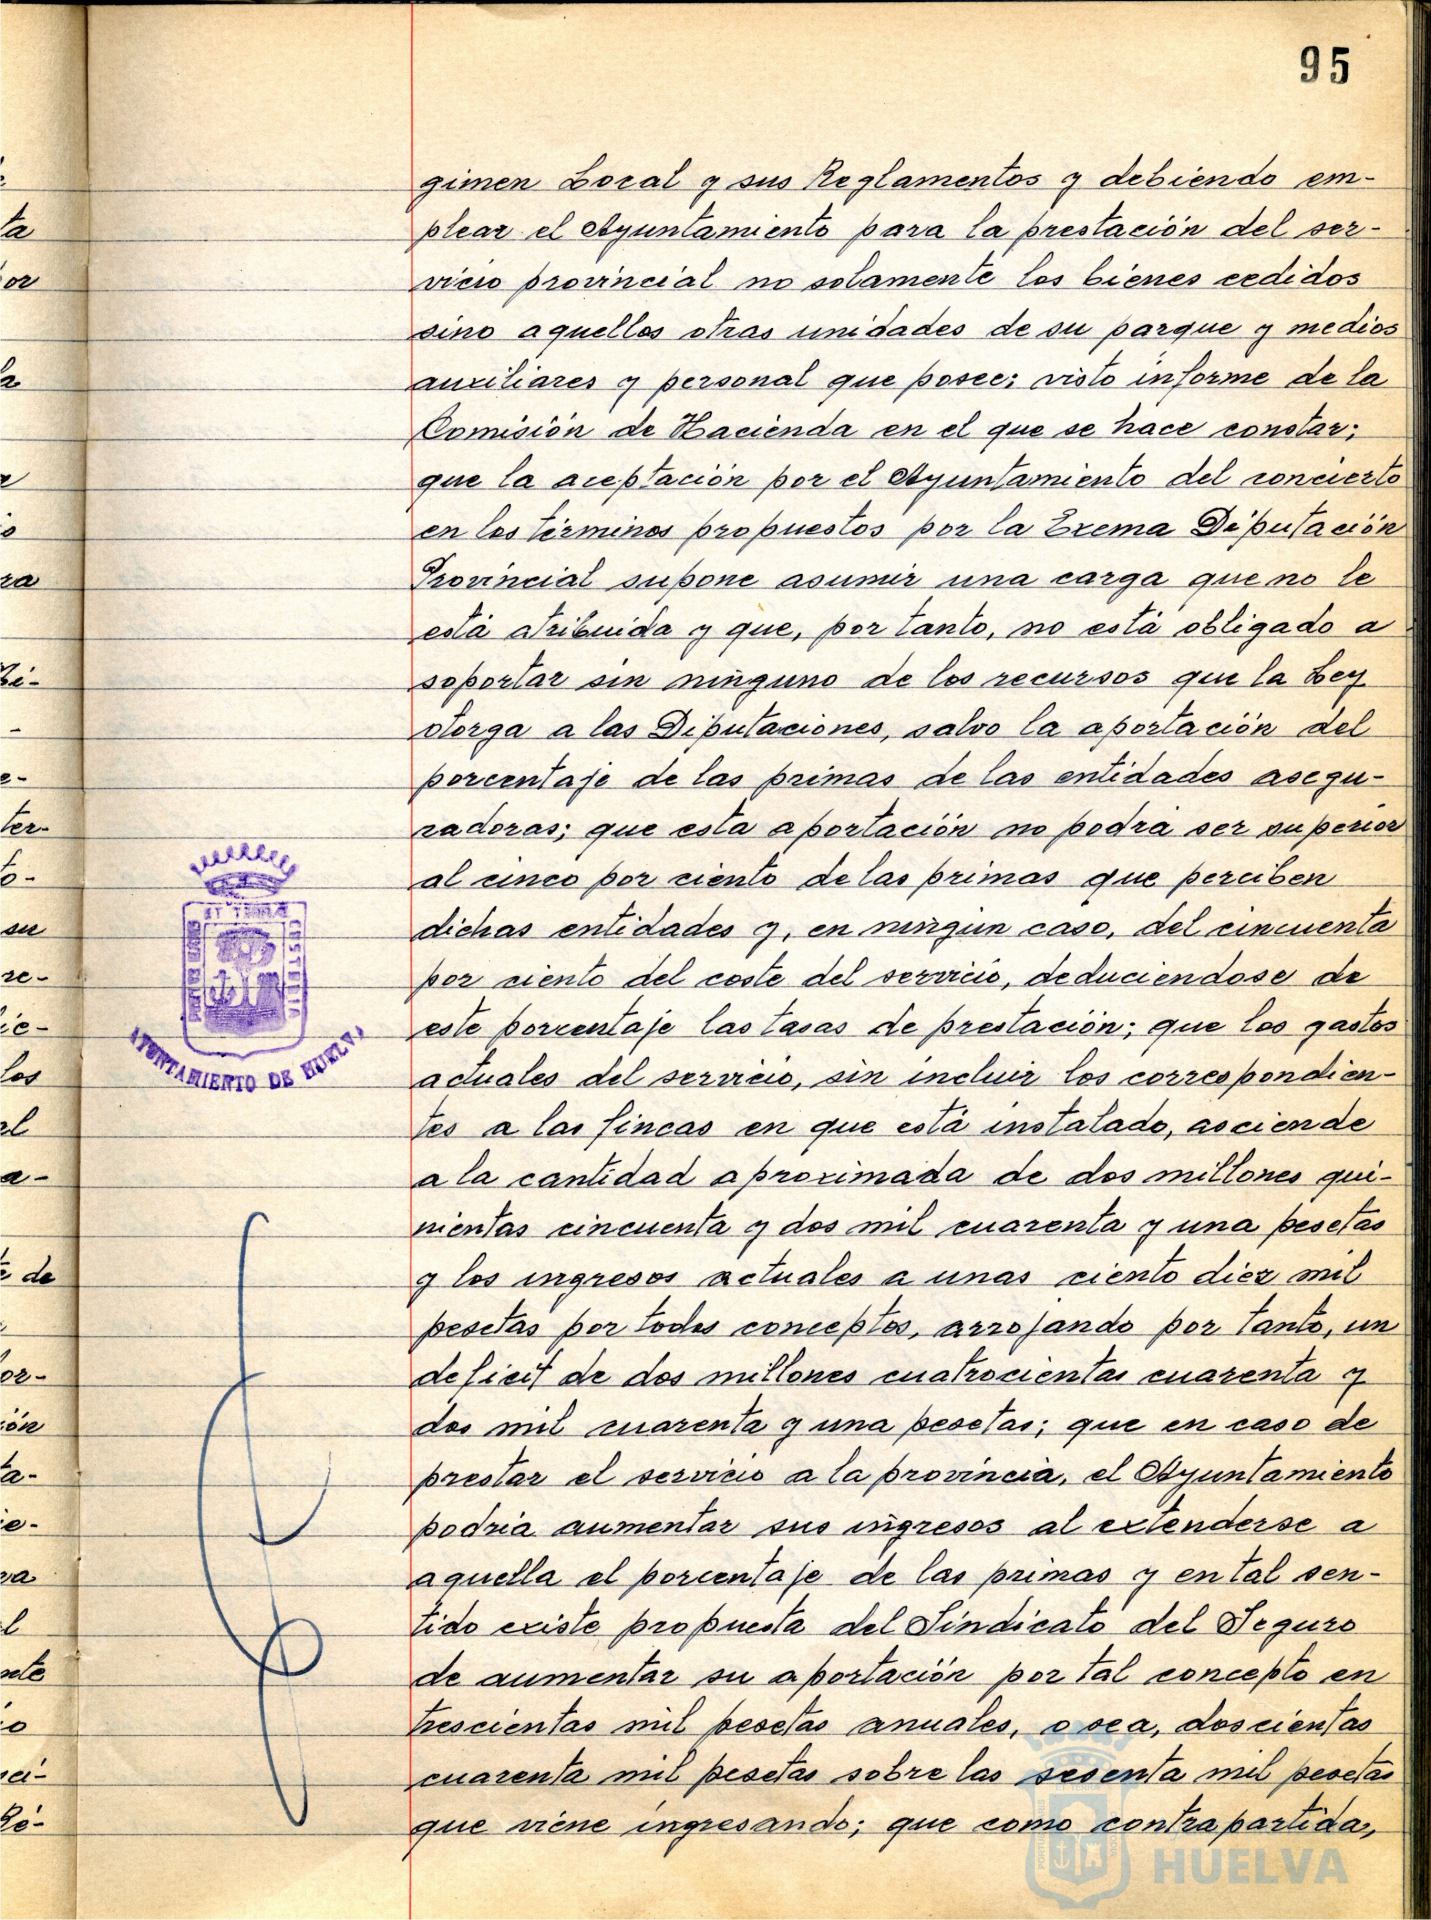 95
gimen Local y sus Reglamentos y debiendo em-
plear el Ayuntamiento para la prestación del ser-
vicio provincial no solamente los bienes cedidos
sino aquellos otras unidades de su parque y medios
auxiliares y personal que posee; visto informe de la
Comisión de Hacienda en el que se hace constar;
que la aceptación por el Ayuntamiento del concierto
en los términos propuestos por la Exema Diputación
Provincial supone asumir una carga que no le
está atribuida y que, por tanto, no está obligado a
soportar sin ninguno de los recursos que la Ley
otorga a las Diputaciones, salvo la aportación del
porcentaje de las primas de las entidades asegu-
radoras; que esta aportación no podrá ser superior
al cinco por ciento de las primas que perciben
dichas entidades y, en ningún caso, del cincuenta
por ciento del coste del servicio, deduciendose de
este porcentaje las tasas de prestación; que los gastos
actuales del servicio, sin incluir los correspondien-
tes a las fincas en que está instalado, asciende
a la cantidad aproximada de dos millones qui-
nientas cincuenta y dos mil cuarenta y una pesetas
y los ingresos actuales a unas ciento diez mil
pesetas por todos conceptos, arrojando por tanto, un
deficit de dos millones cuatrocientas cuarenta y
dos mil cuarenta y una pesetas; que en caso de
prestar el servicio a la provincia, el Ayuntamiento
podria aumentar sus ingresos al extenderse a
aquella el porcentaje de las primas y en tal sen-
tido existe propuesta del Sindicato del Seguro
de aumentar su aportación por tal concepto en
trescientas mil pesetas anuales, o sea, doscientas
cuarenta mil pesetas sobre las sesenta mil pesetas
que viene ingresando; que como contrapartida,
AYUNTAMIENTO DE HUELVA
HUELVA